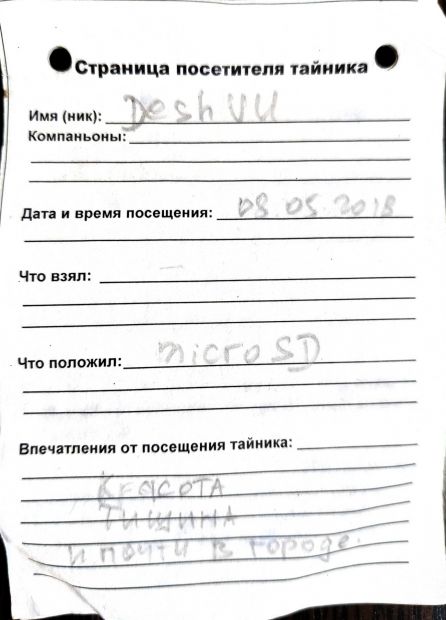 Страница посетителя тайника
Имя (ник): Desh VU
Компаньоны:
Дата и время посещения: 08.05.2018
Что взял: —
Что положил: microSD
Впечатления от посещения тайника:
Красота
Тишина
и почти в городе.